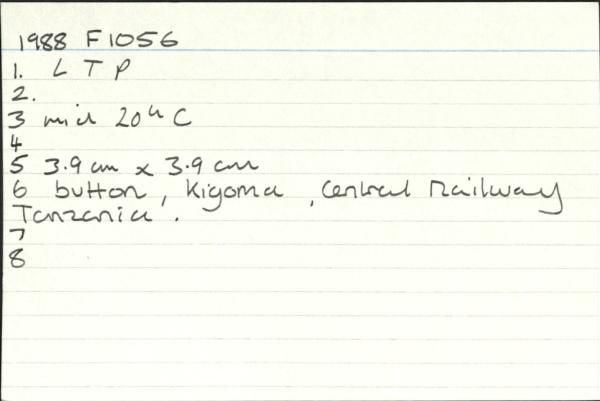 1988 F1056
1. L T P
2.
3 mid 20th C
4
5 3.9 cm x 3.9 cm
6 button, Kigoma, Central Railway
Tanzania.
7
8